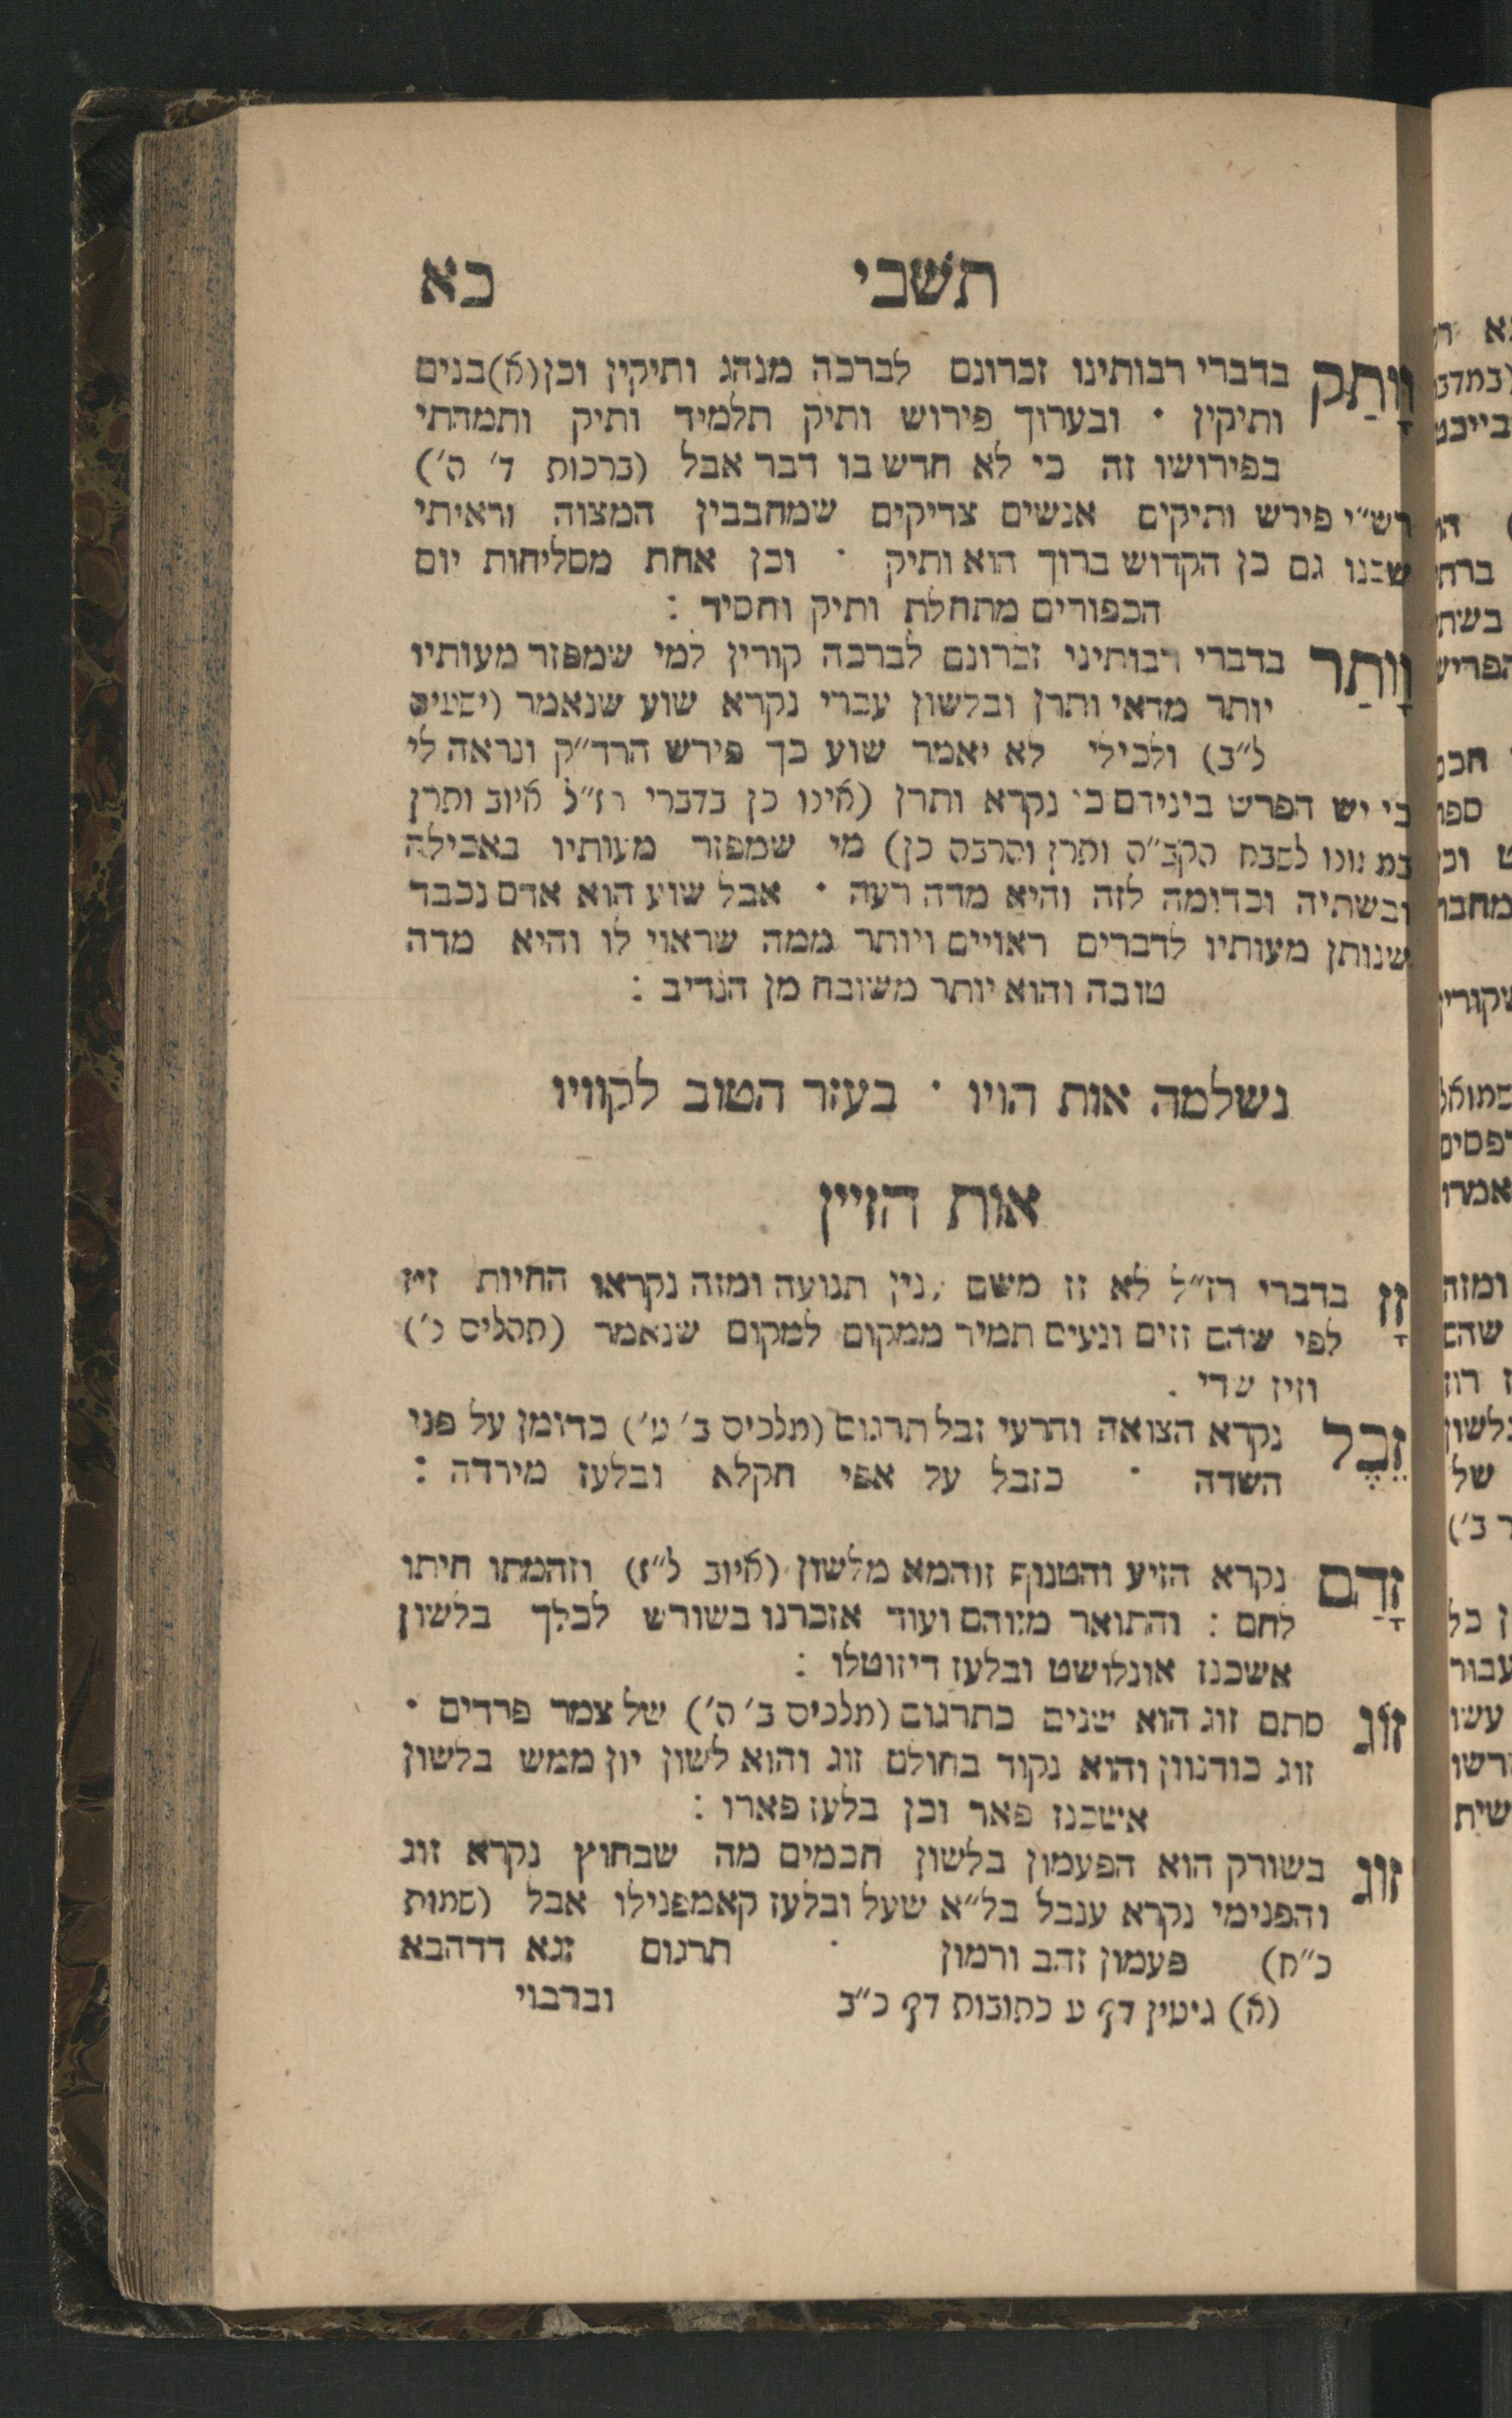 תשבי כא
וָתַק בדברי רבותינו זכרונם לברכה מנהג ותיקין וכן (א) בנים
ותיקין · ובערוך פירוש ותיק תלמיד ותיק ותמהתי
בפירושו זה כי לא חדש בו דבר אבל (ברכות ד' ה')
רש"י פירש ותיקים אנשים צדיקים שמחבבין המצוה וראיתי
שכנו גם כן הקדוש ברוך הוא ותיק · וכן אחת מסליחות יום
הכפורים מתחלת ותיק וחסיד :
וָתַר בדברי רבותינו זכרונם לברכה קורין למי שמפזר מעותיו
יותר מדאי ותרן ובלשון עברי נקרא שוע שנאמר (ישעיה
ל"ב) ולכילי לא יאמר שוע כך פירש הרד"ק ונראה לי
כי יש הפרש ביניהם כי נקרא ותרן (אינו כן בדברי רז"ל איוב ותרן
לשבח הקב"ה ותרן והרבה כן) מי שמפזר מעותיו באכילה
ובשתיה וכדומה לזה והיא מדה רעה · אבל שוע הוא אדם נכבד
שנותן מעותיו לדברים ראויים ויותר ממה שראוי לו והיא מדה
טובה והוא יותר משובח מן הנדיב :
נשלמה אות הויו · בעזר הטוב לקוויו
אות הזיין
זָז בדברי רז"ל לא זז משם תנועה ומזה נקראו החיות זיז
לפי שהם זזים ונעים תמיד ממקום למקום שנאמר (תהלים נ')
וזיז שדי .
זֶבֶל נקרא הצואה והרעי זבל תרגום (מלכים ב' ט') כדומן על פני
השדה · כזבל על אפי חקלא ובלעז מירדה :
זָהַם נקרא הזיע והטנוף זוהמא מלשון (איוב ל"ז) וזהמתו חיתו
לחם : והתואר מזוהם ועוד אזכרנו בשורש לכלך בלשון
אשכנז אונלושט ובלעז דיזוטלו :
זוֹג סתם זוג הוא שנים כתרגום (מלכים ב' ה') של צמד פרדים ·
זוג כודנוון והוא נקוד בחולם זוג והוא לשון יון ממש בלשון
אשכנז פאר וכן בלעז פארו :
זוג בשורק הוא הפעמון בלשון חכמים מה שבחוץ נקרא זוג
והפנימי נקרא ענבל בל"א שעל ובלעז קאמפנילו אבל (שמות
כ"ח) פעמון זהב ורמון · תרגום זגא דדהבא
(א) גיטין דף ע כתובות דף כ"ב וברבוי